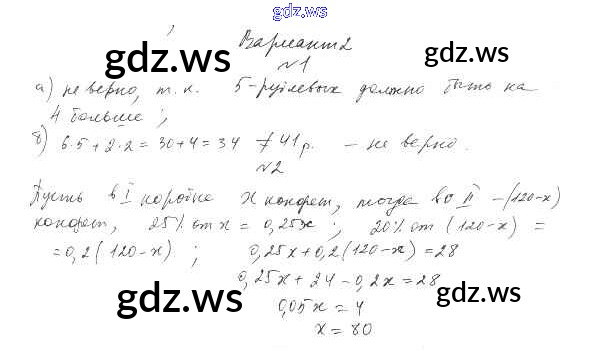 gdz.ws
Вариант 2
№1
а) не верно, т.к. 5-рублевых должно быть на
4 больше;
б) 6·5+2·2=30+4=34 ≠ 41 р. – не верно.
№2
Пусть в I коробке x конфет, тогда во II –(120-x)
конфет, 25% от x = 0,25x ; 20% от (120-x) =
=0,2(120-x) ; 0,25x+0,2(120-x)=28
0,25x+24-0,2x=28
0,05x=4
x=80
gdz.ws
gdz.ws
gdz.ws
gdz.ws
gdz.ws
gdz.ws
gdz.ws
gdz.ws